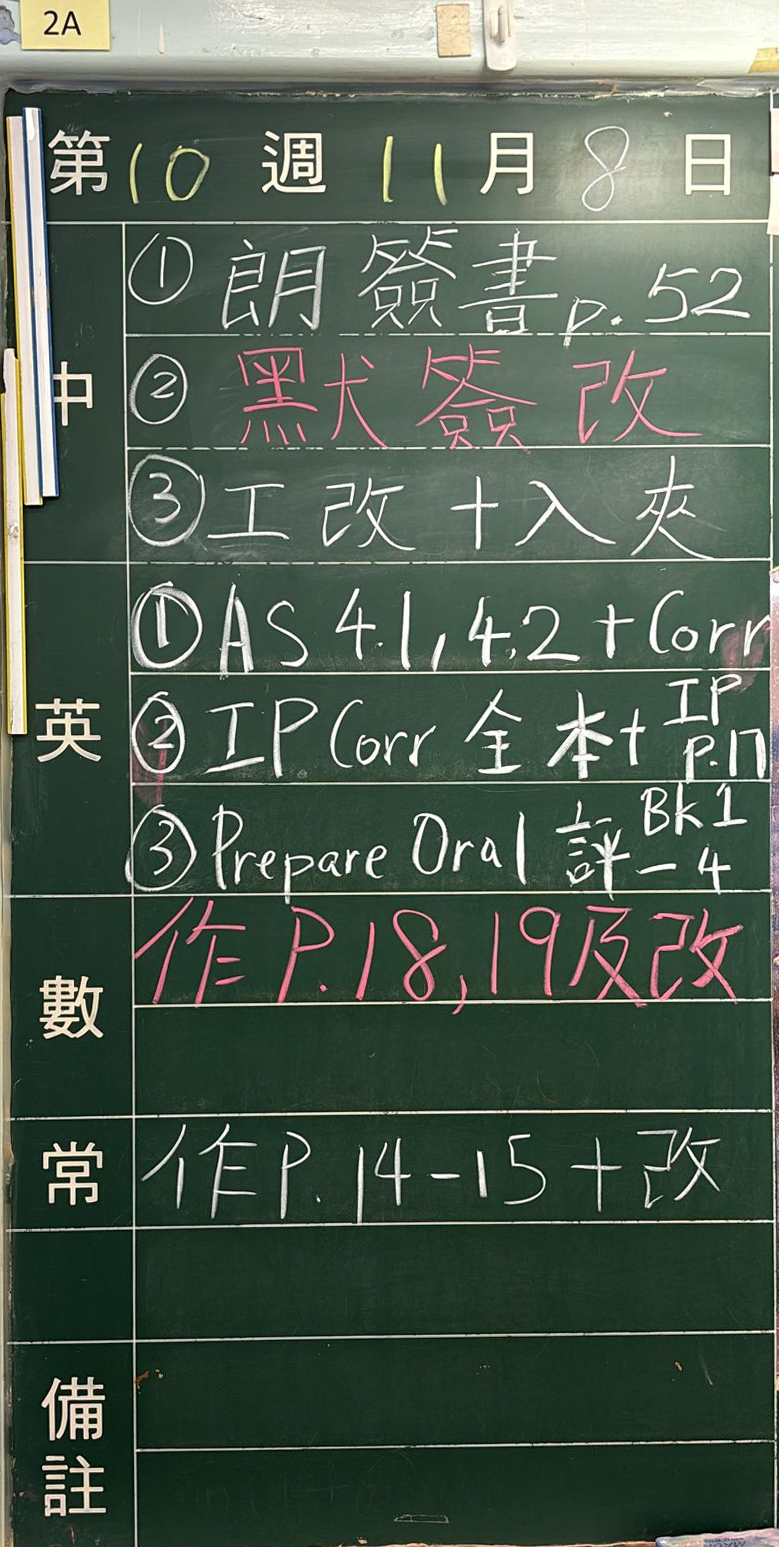 2A
第10週11月8日
中
① 朗簽書p.52
② 默簽改
③ 工改+入夾
英
① AS 4.1, 4.2 + Corr
② IP Corr 全本+ IP P.17
③ Prepare Oral 評 Bk1-4
數
作P.18,19及改
常
作P.14-15+改
備註